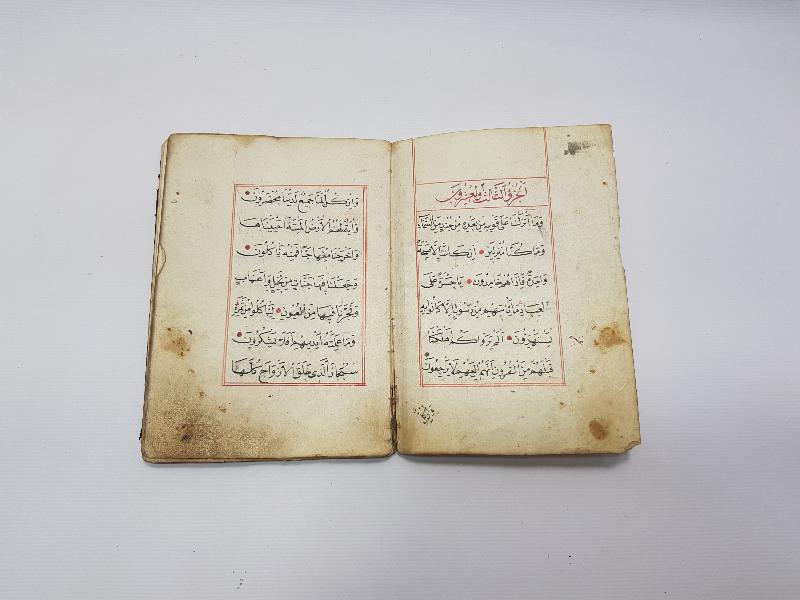 الجزو الثالث والعشرون
وما انزلنا على قومه من بعده من جند من السماء
وما كنا منزلين ان كانت الا صيحة
واحدة فاذا هم خامدون يا حسرة على
العباد ما ياتيهم من رسول الا كانوا به
يستهزون الم يروا كم اهلكنا
قبلهم من القرون انهم اليهم لا يرجعون
وان كل
وان كل لما جميع لدينا محضرون
واية لهم الارض الميتة احييناها
واخرجنا منها حبا فمنه ياكلون
وجعلنا فيها جنات من نخيل واعناب
وفجرنا فيها من العيون لياكلوا من ثمره
وما عملته ايديهم افلا يشكرون
سبحان الذي خلق الازواج كلها